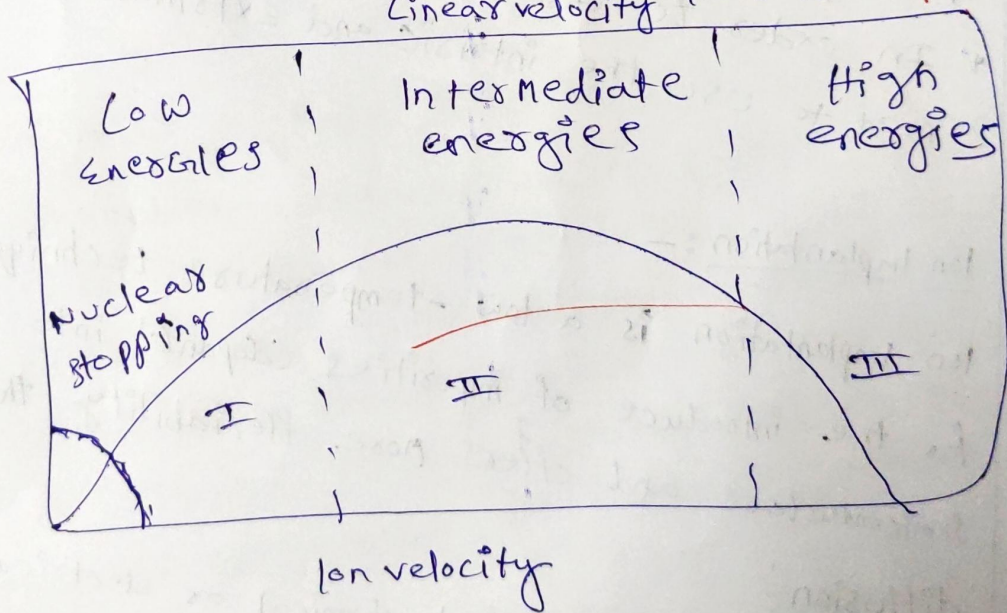 Linear velocity
Low
Energies
Intermediate
energies
High
energies
Nuclear
stopping
I
II
III
Ion velocity